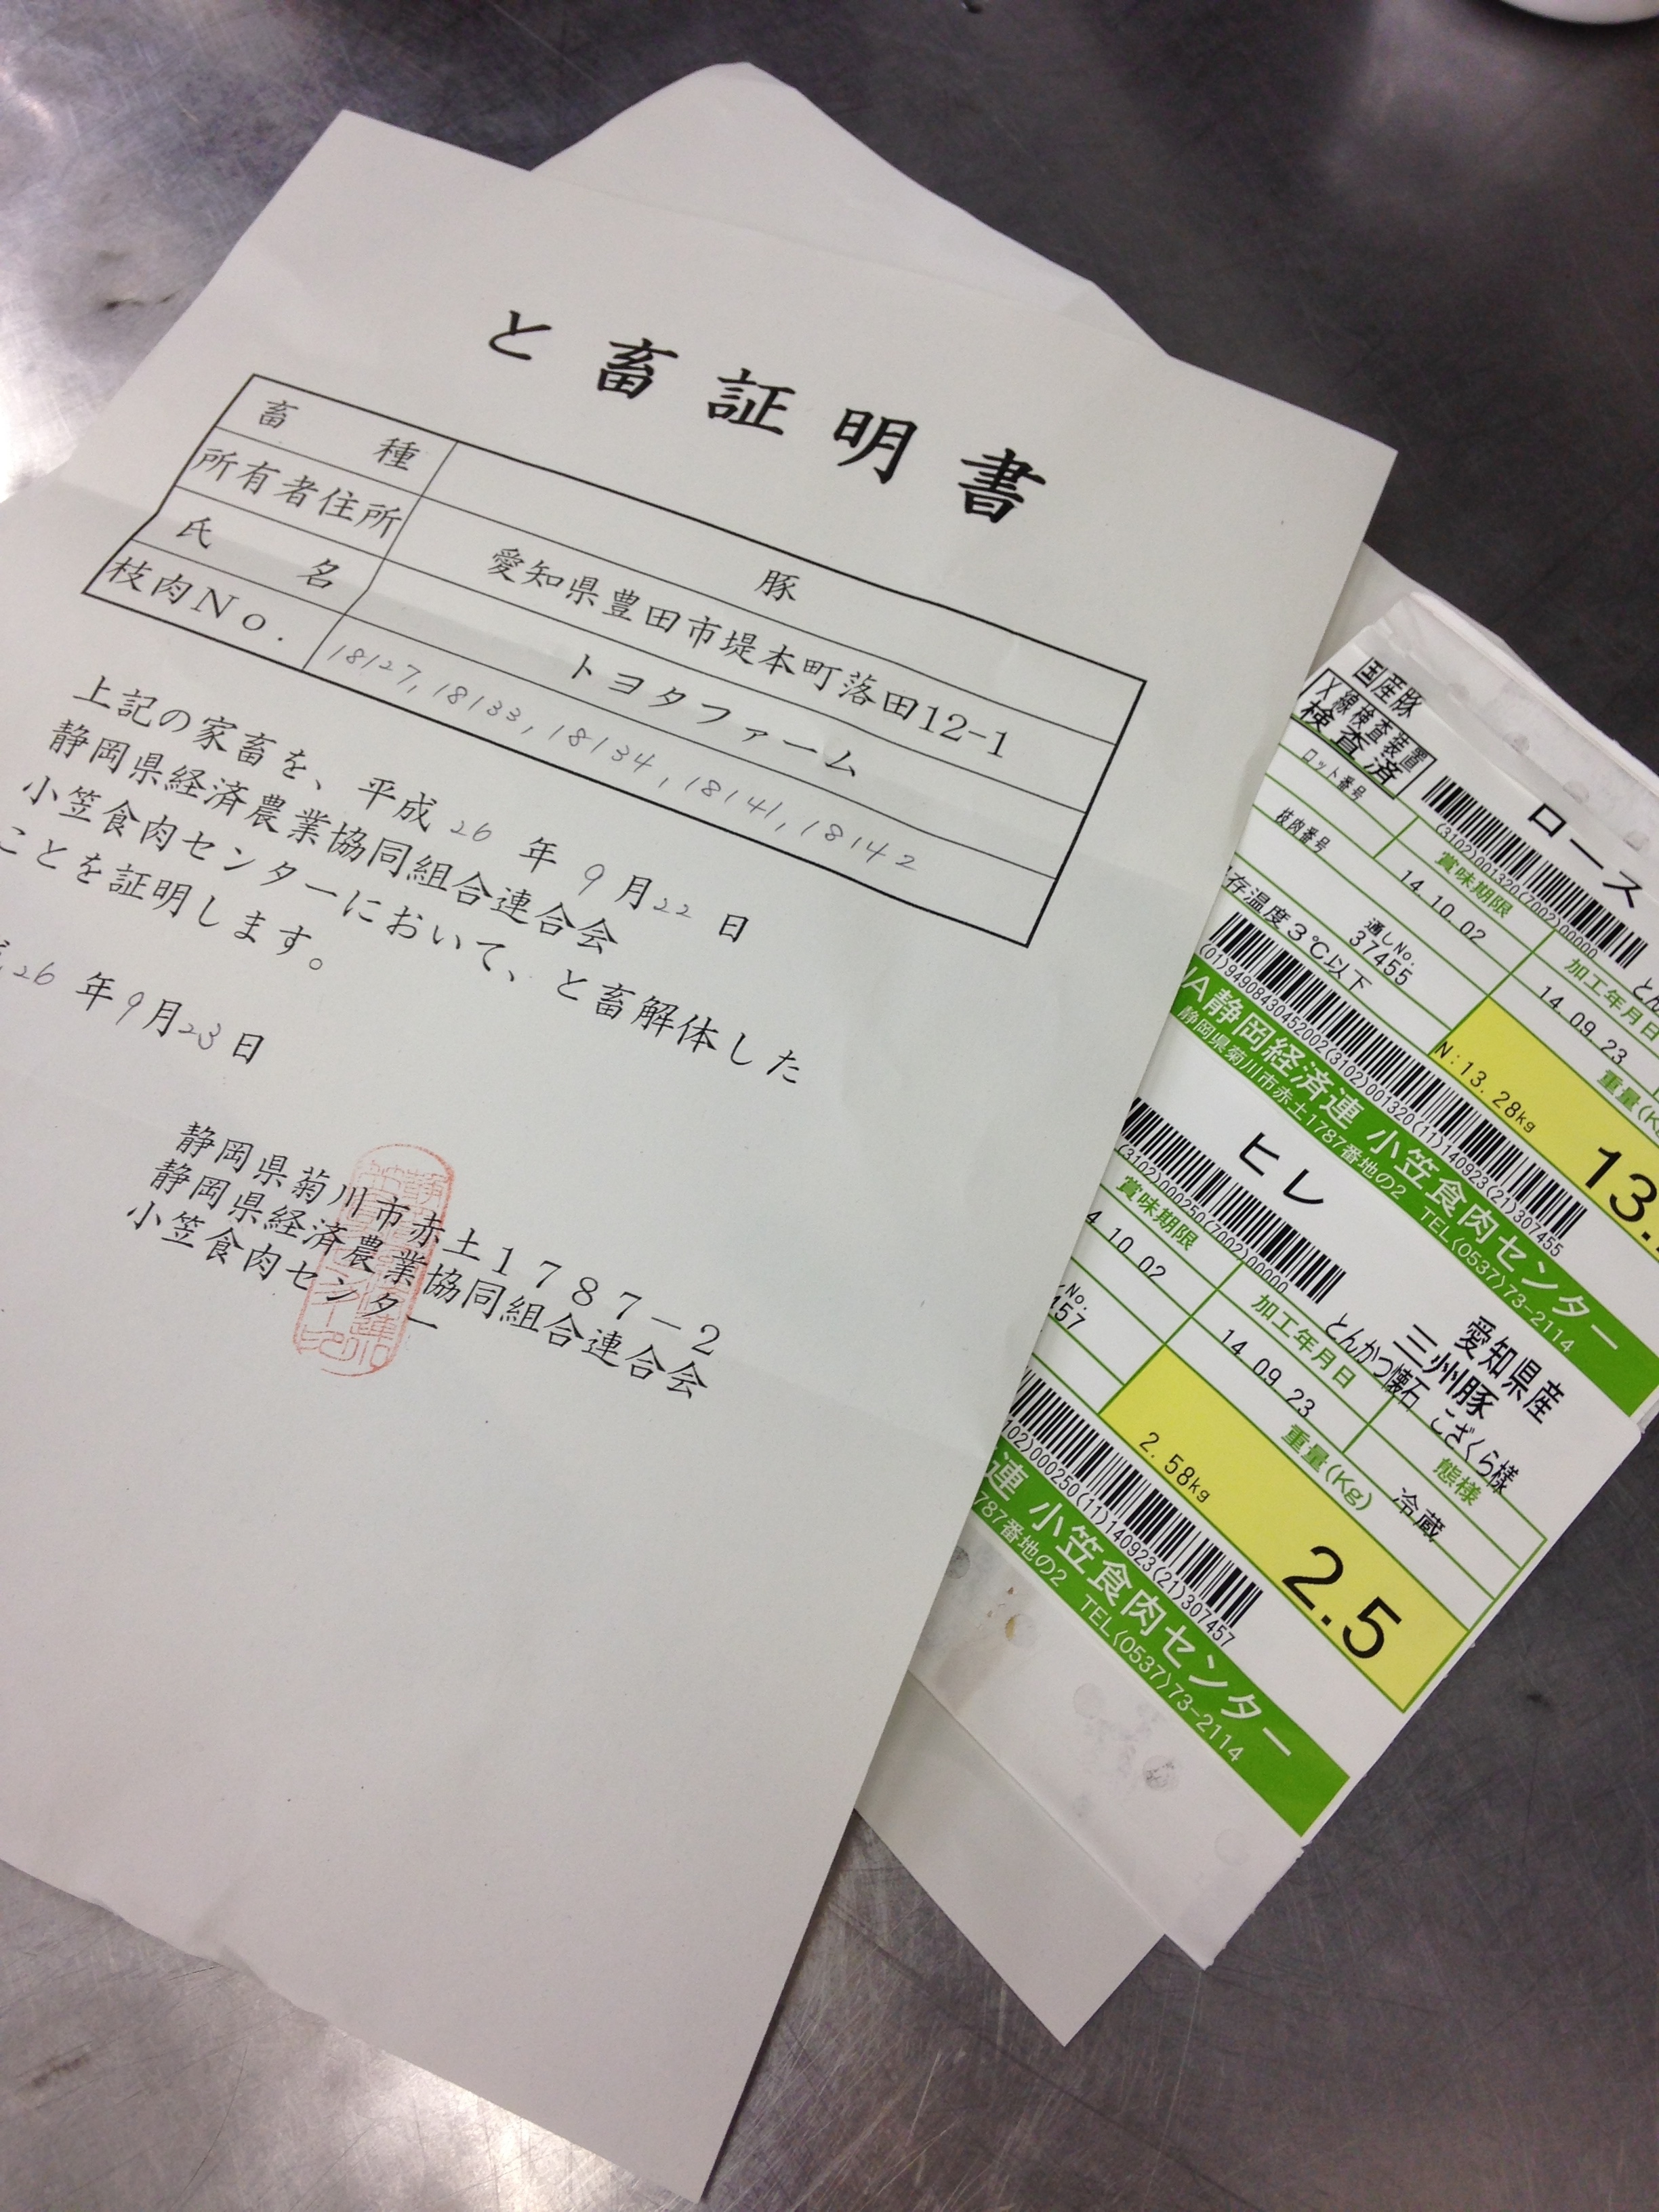 と畜証明書
畜種 豚
所有者住所 愛知県豊田市堤本町落田12-1
氏名 トヨタファーム
枝肉No. 18127, 18133, 18134, 18141, 18142
上記の家畜を、平成26年9月22日
静岡県経済農業協同組合連合会
小笠食肉センターにおいて、と畜解体した
ことを証明します。
26年9月23日
静岡県菊川市赤土1787-2
静岡県経済農業協同組合連合会
小笠食肉センター
国産豚
X線検査装置
検査済
ロース
(3102)001320(7002)00000
ロット番号
賞味期限
14.10.02
加工年月日
14.09.23
枝肉番号
通しNo.
37455
重量(K
存温度3℃以下
N:13.28kg
13.
(01)94908430452002(3102)001320(11)140923(21)307455
A静岡経済連 小笠食肉センター
静岡県菊川市赤土1787番地の2 TEL(0537)73-2114
ヒレ
愛知県産
三州豚
とんかつ懐石 こざくら様
(3102)000250(7002)00000
賞味期限
4.10.02
加工年月日
14.09.23
態様
冷蔵
No.
457
重量(Kg)
2.58kg
2.5
102)000250(11)140923(21)307457
連 小笠食肉センター
787番地の2 TEL(0537)73-2114